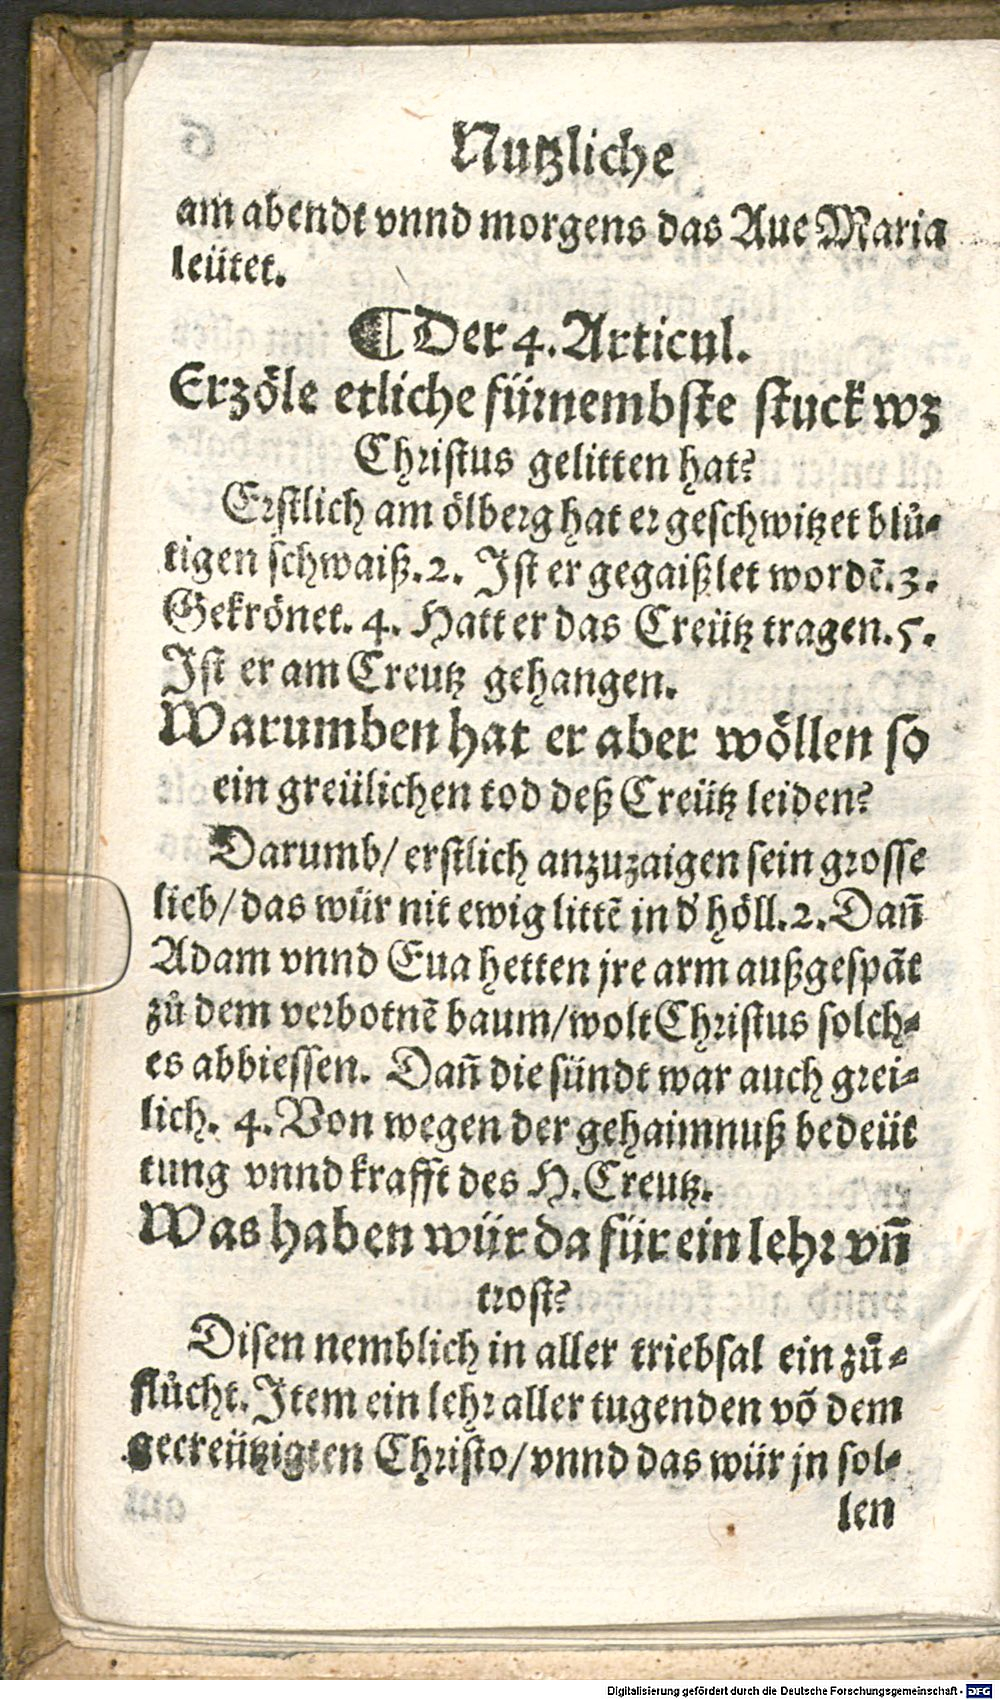 Nutzliche
am abendt vnnd morgens das Aue Maria
leütet.
¶ Der 4. Articul.
Erzöle etliche fürnembste stuck wz
Christus gelitten hat?
Erstlich am ölberg hat er geschwitzet blů-
tigen schwaiß. 2. Ist er gegaißlet wordẽ. 3.
Gekrönet. 4. Hatt er das Creütz tragen. 5.
Ist er am Creutz gehangen.
Warumben hat er aber wöllen so
ein greülichen tod deß Creütz leiden?
Darumb/ erstlich anzuzaigen sein grosse
lieb/ das wür nit ewig littẽ in d' höll. 2. Dañ
Adam vnnd Eua hetten jre arm außgespãt
zů dem verbotnẽ baum/ wolt Christus solch-
es abbiessen. Dañ die sündt war auch grei-
lich. 4. Von wegen der gehaimnuß bedeüt
tung vnnd krafft des H. Creutz.
Was haben wür da für ein lehr vñ
trost?
Disen nemblich in aller triebsal ein zů-
flůcht. Item ein lehr aller tugenden võ dem
gecreützigten Christo/ vnnd das wür jn sol-
len
Digitalisierung gefördert durch die Deutsche Forschungsgemeinschaft - DFG